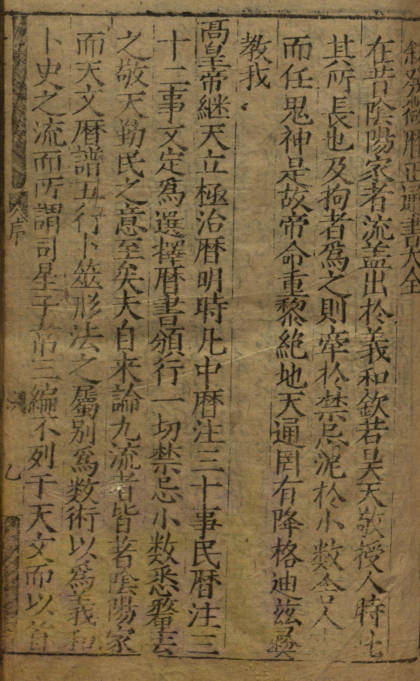 在昔陰陽家者流蓋出於羲和欽若昊天敬授人時也
其所長也及拘者爲之則牽於禁忌泥於小數舍人
而任鬼神是故帝命重黎絶地天通罔有降格迪茲彛
教我
髙皇帝繼天立極治曆明時凡中曆注三十事民曆注三
十二事文定為選擇曆書頒行一切禁忌小數悉釐去
之敬天勤民之意至矣夫自来論九流者皆著陰陽家
而天文曆譜五行卜筮形法之屬别爲数術以爲羲和
卜史之流而所謂司星子韋三編不列于天文而以首
序